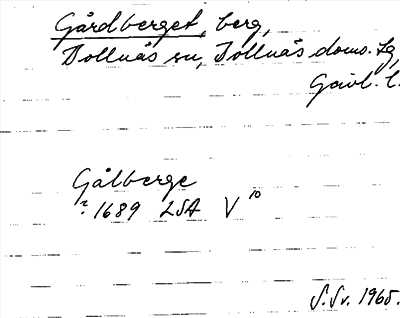 Gårdberget, berg,
Bollnäs sn, Bollnäs doms. tg,
Gävl. l.
Gålberge
? 1689 LSA V 10
S. Sv. 1965.